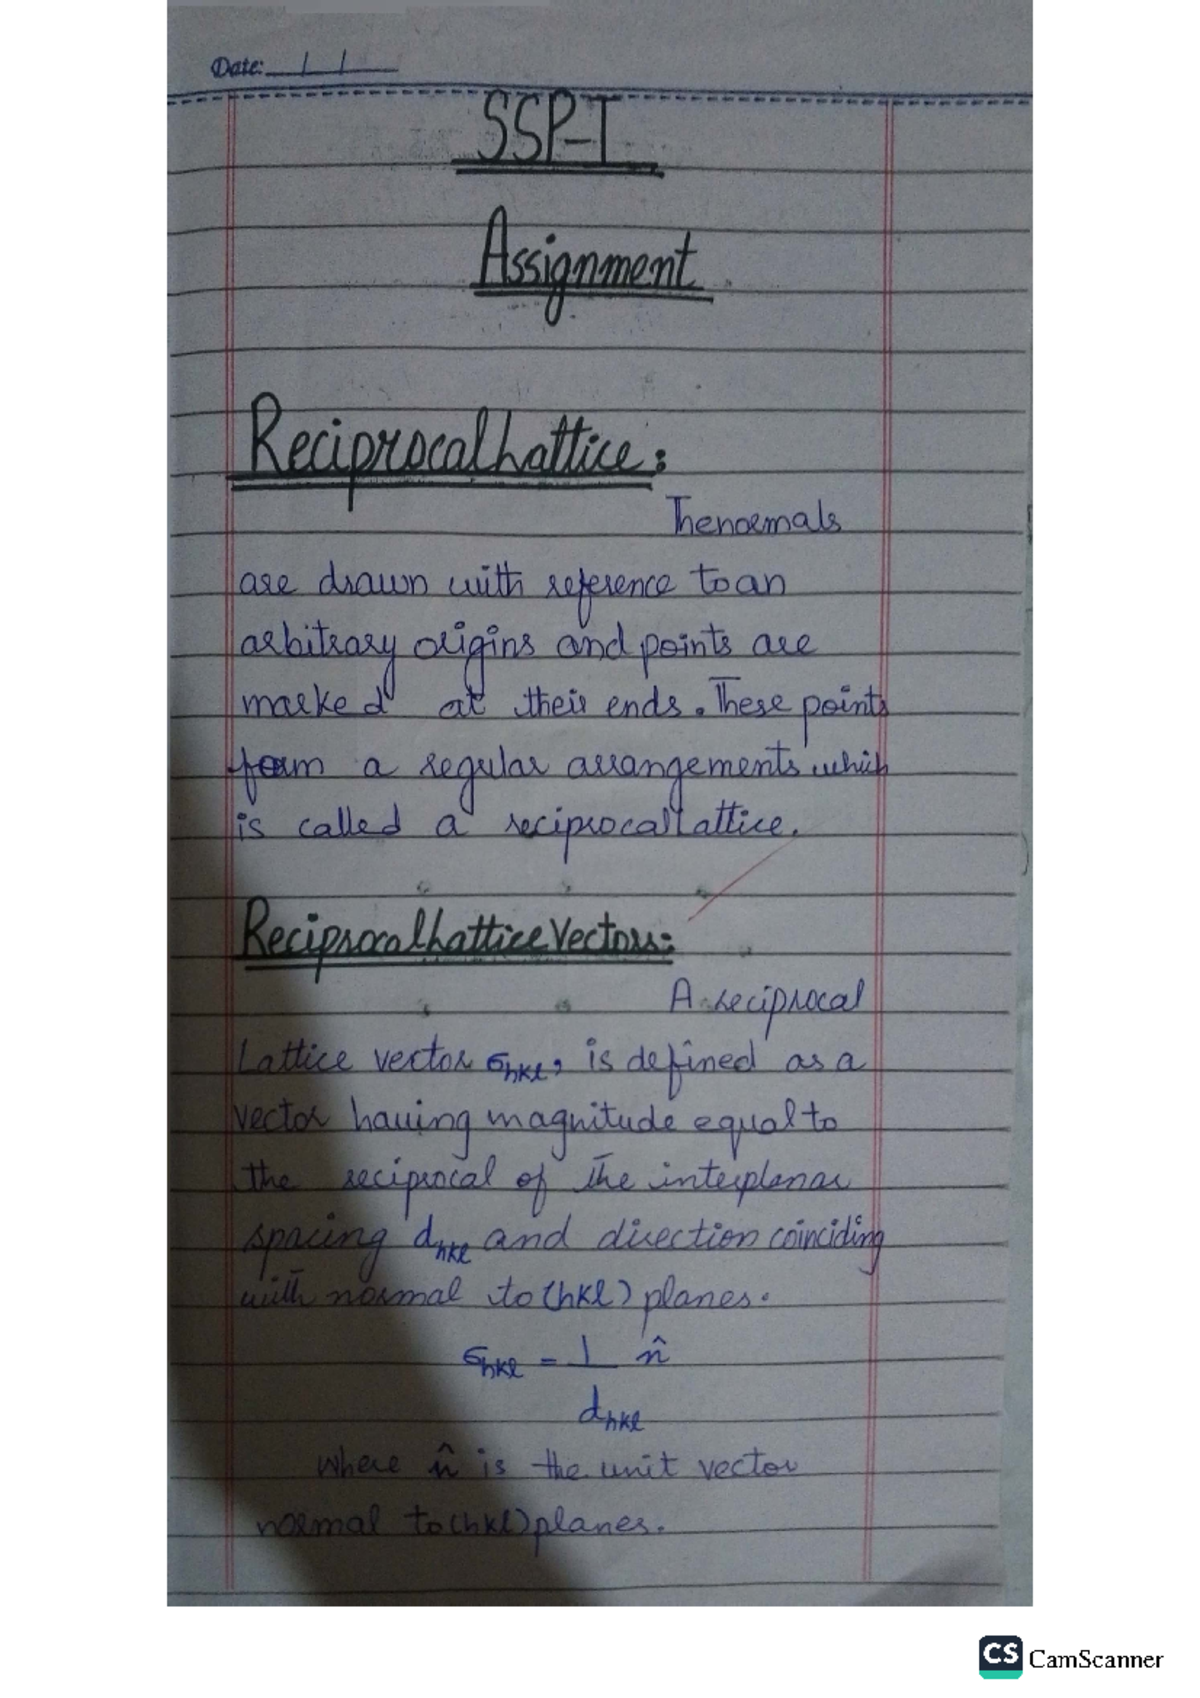 Date: / /
SSP-I
Assignment
Reciprocal Lattice:
The normals
are drawn with reference to an
arbitrary origins and points are
marked at their ends. These points
form a regular arrangements which
is called a reciprocal lattice.
Reciprocal Lattice Vectors:
A reciprocal
Lattice vector σhkl, is defined as a
vector having magnitude equal to
the reciprocal of the interplanar
spacing dhkl and direction coinciding
with normal to (hkl) planes.
σhkl = 1 n̂
dhkl
where n̂ is the unit vector
normal to (hkl) planes.
CS CamScanner